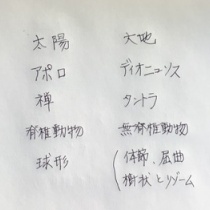 太陽 大地
アポロ ディオニュソス
禅 タントラ
脊椎動物 無脊椎動物
球形 (体節、屈曲
樹状とリゾーム